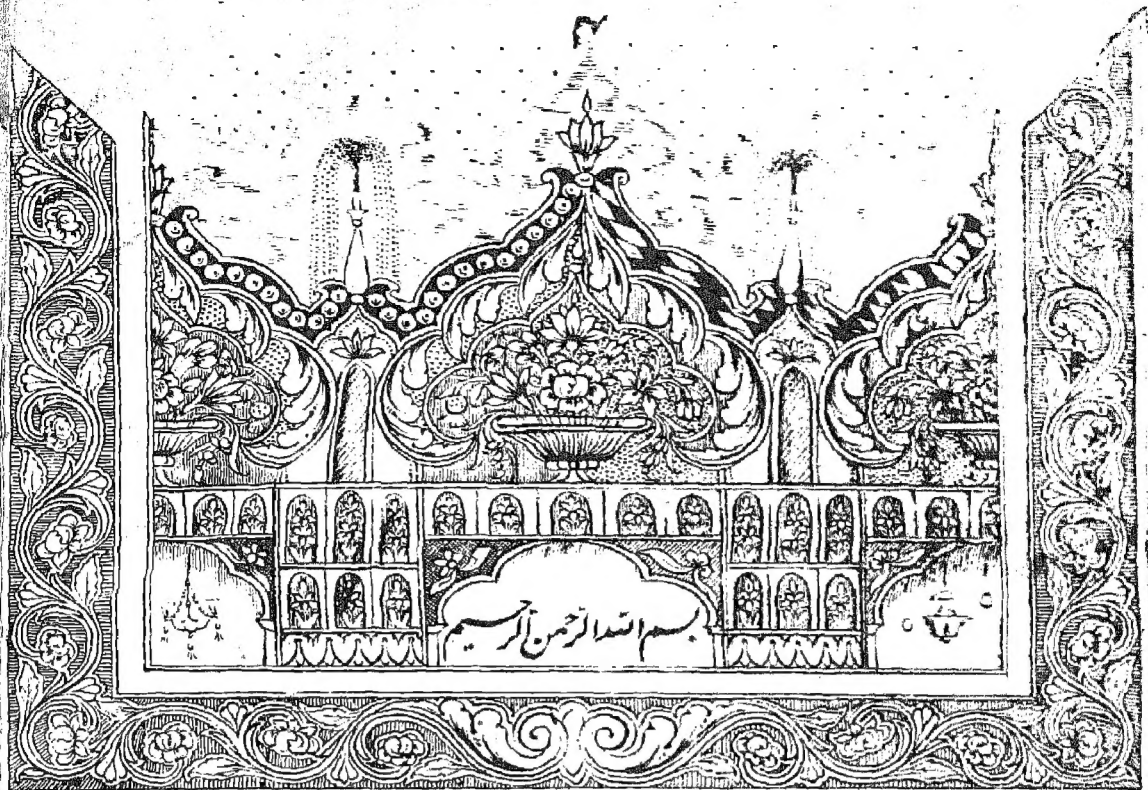 ۲
بسم الله الرحمن الرحیم